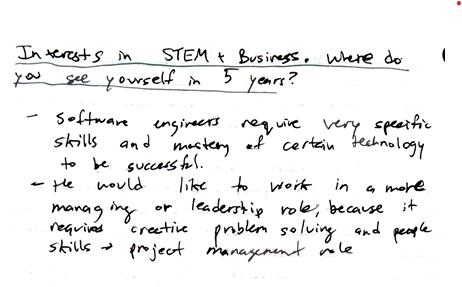 Interests in STEM + Business. Where do
you see yourself in 5 years?
- Software engineers require very specific
skills and mastery of certain technology
to be successful.
- He would like to work in a more
managing or leadership role, because it
requires creative problem solving and people
skills → project management role